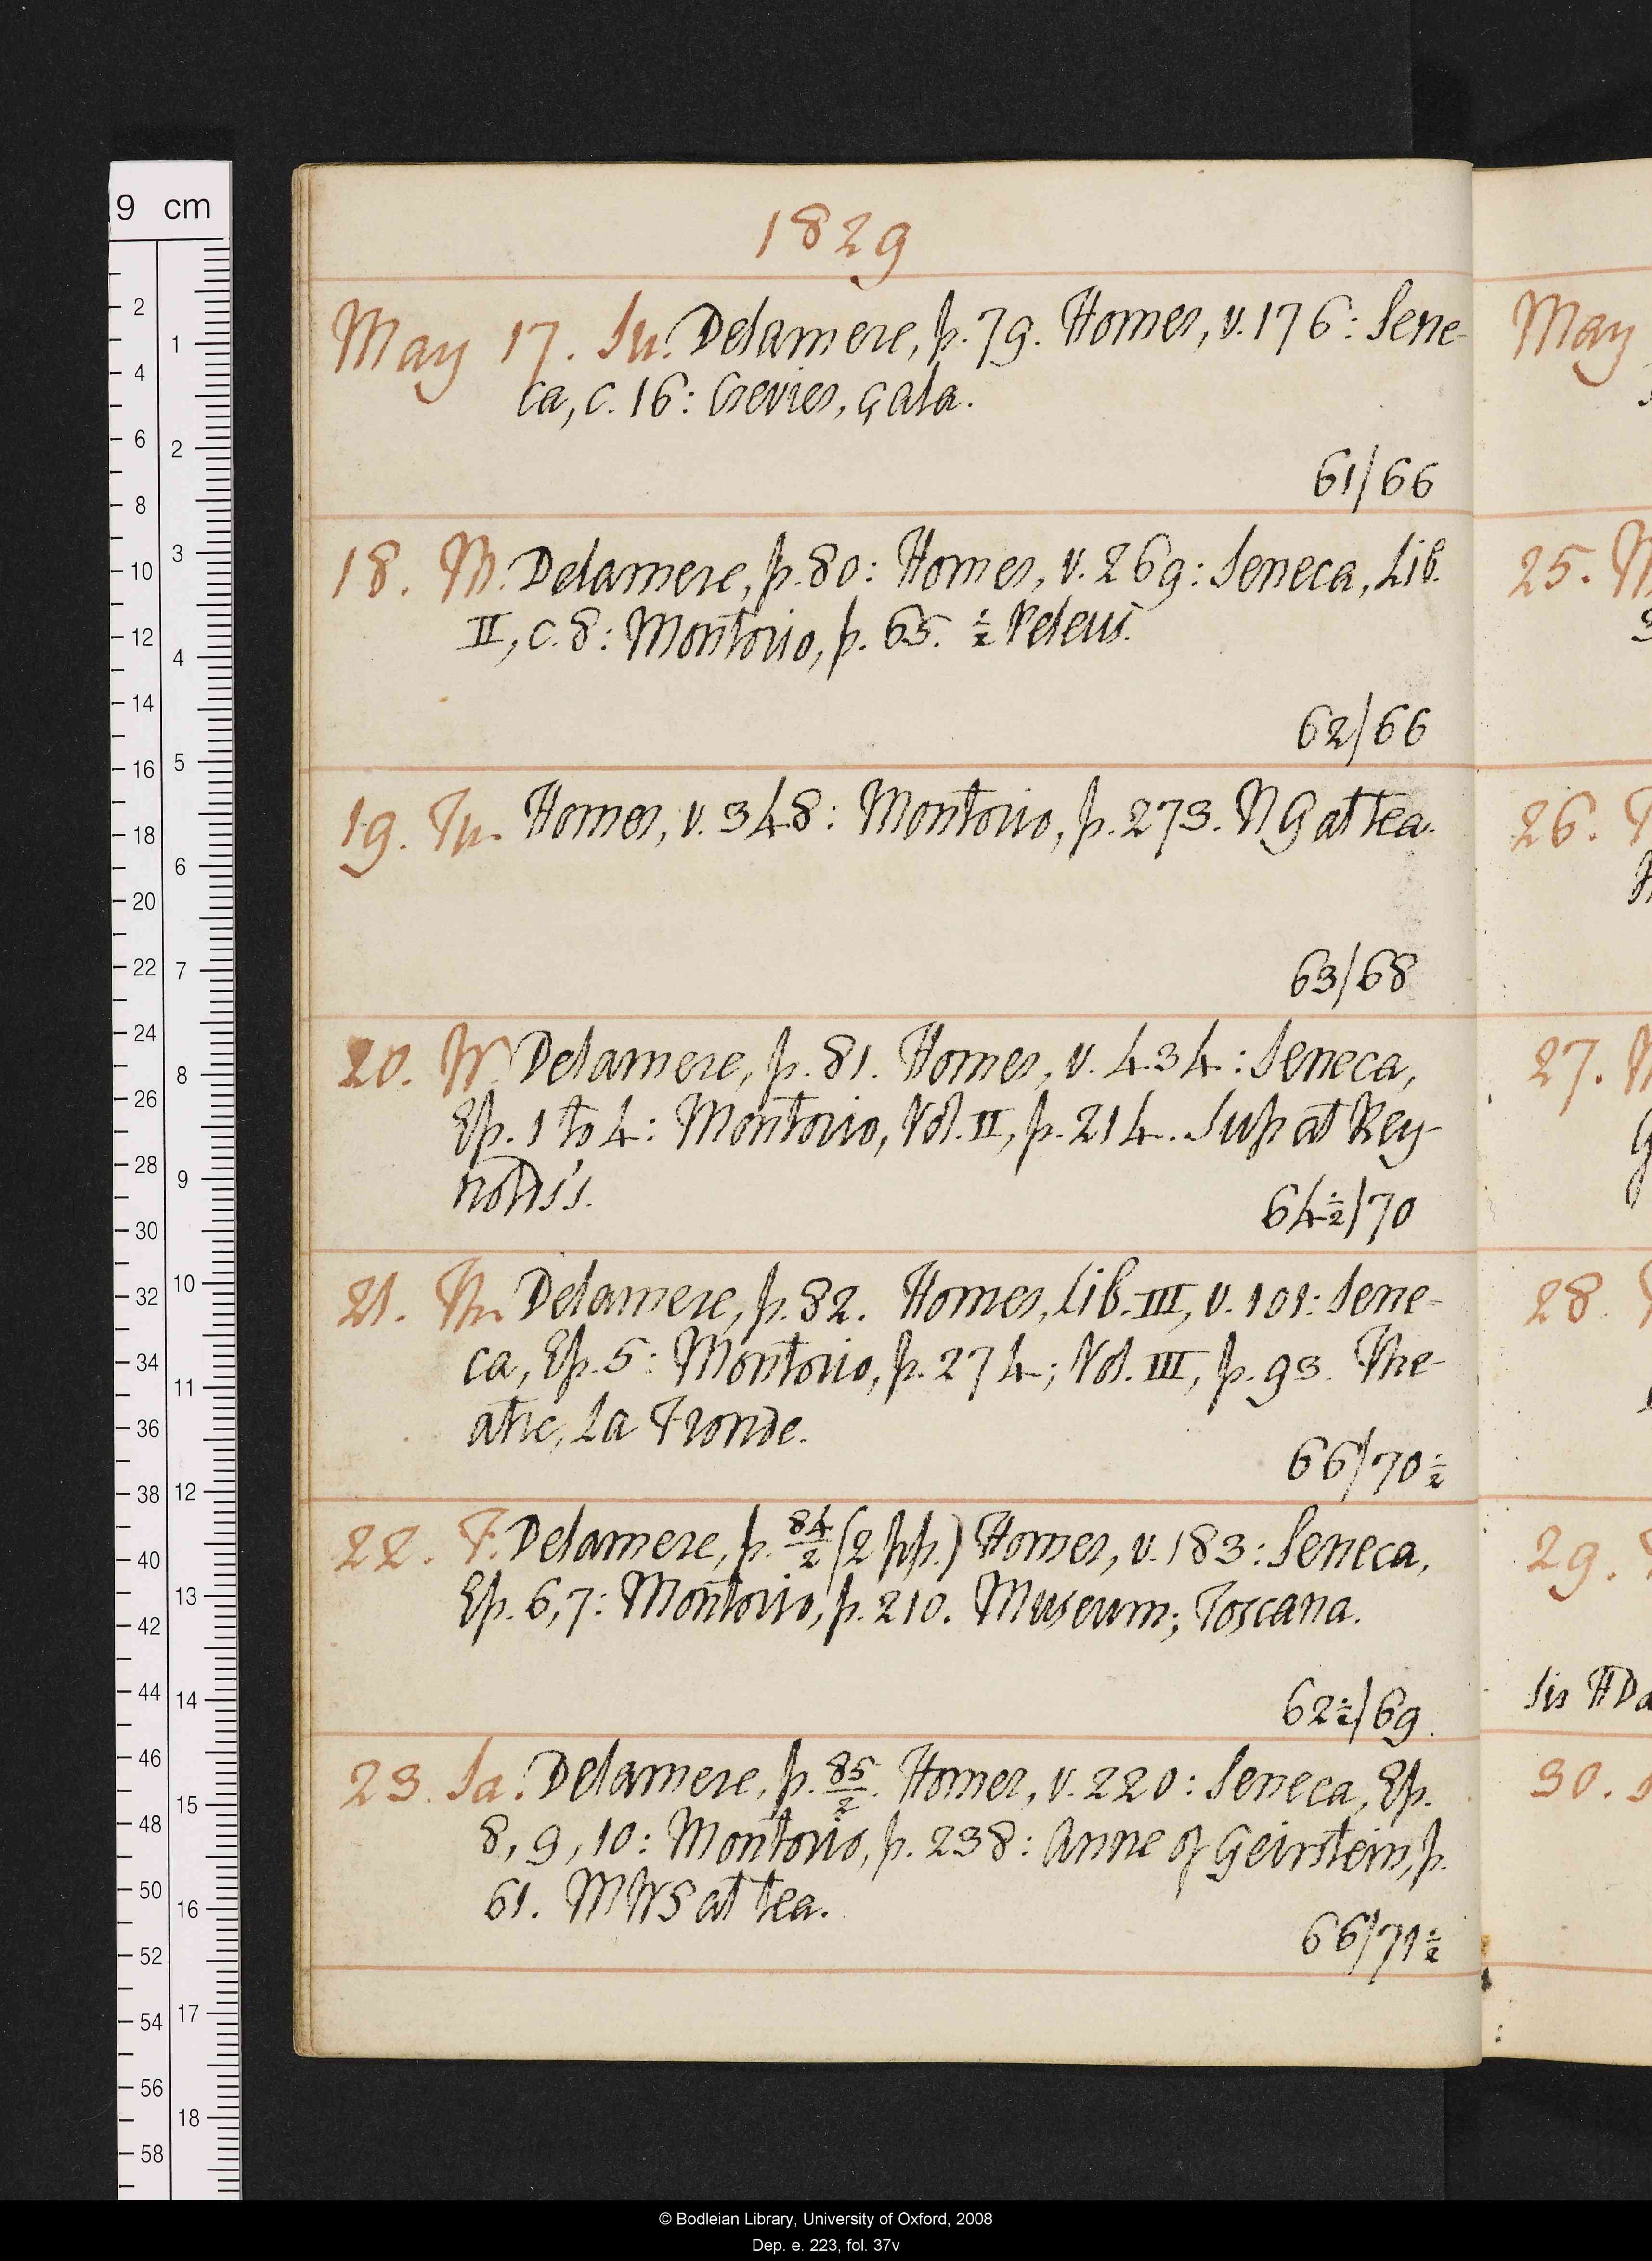 1829
May 17. Su. Delamere, p. 79. Homer, v. 176: Sene-
ca, c. 16: Crevier, çala.
61/66
18. M. Delamere, p. 80: Homer, v. 269: Seneca, Lib.
II, c. 8: Montorio, p. 65. ½ Peleus.
62/66
19. Tu. Homer, v. 348: Montorio, p. 273. NG at tea.
63/68
20. W. Delamere, p. 81. Homer, v. 434: Seneca,
Ep. 1 to 4: Montorio, Vol. II, p. 214. Sup at Rey-
nolds's.
64½/70
21. Th. Delamere, p. 82. Homer, Lib. III, v. 101: Sene-
ca, Ep. 5: Montorio, p. 274; Vol. III, p. 93. The-
atre, La Fronde.
66/70½
22. F. Delamere, p. 84/2 (2 pp.) Homer, v. 183: Seneca,
Ep. 6, 7: Montorio, p. 210. Museum; Toscana.
62½/69.
23. Sa. Delamere, p. 85/2. Homer, v. 220: Seneca, Ep.
8, 9, 10: Montorio, p. 238: Anne of Geirstein, p.
61. MWS at tea.
66/71½
May
25.
26.
27.
28
29.
30.
9 cm
2 4 6 8 10 12 14 16 18 20 22 24 26 28 30 32 34 36 38 40 42 44 46 48 50 52 54 56 58
1 2 3 4 5 6 7 8 9 10 11 12 13 14 15 16 17 18
© Bodleian Library, University of Oxford, 2008
Dep. e. 223, fol. 37v